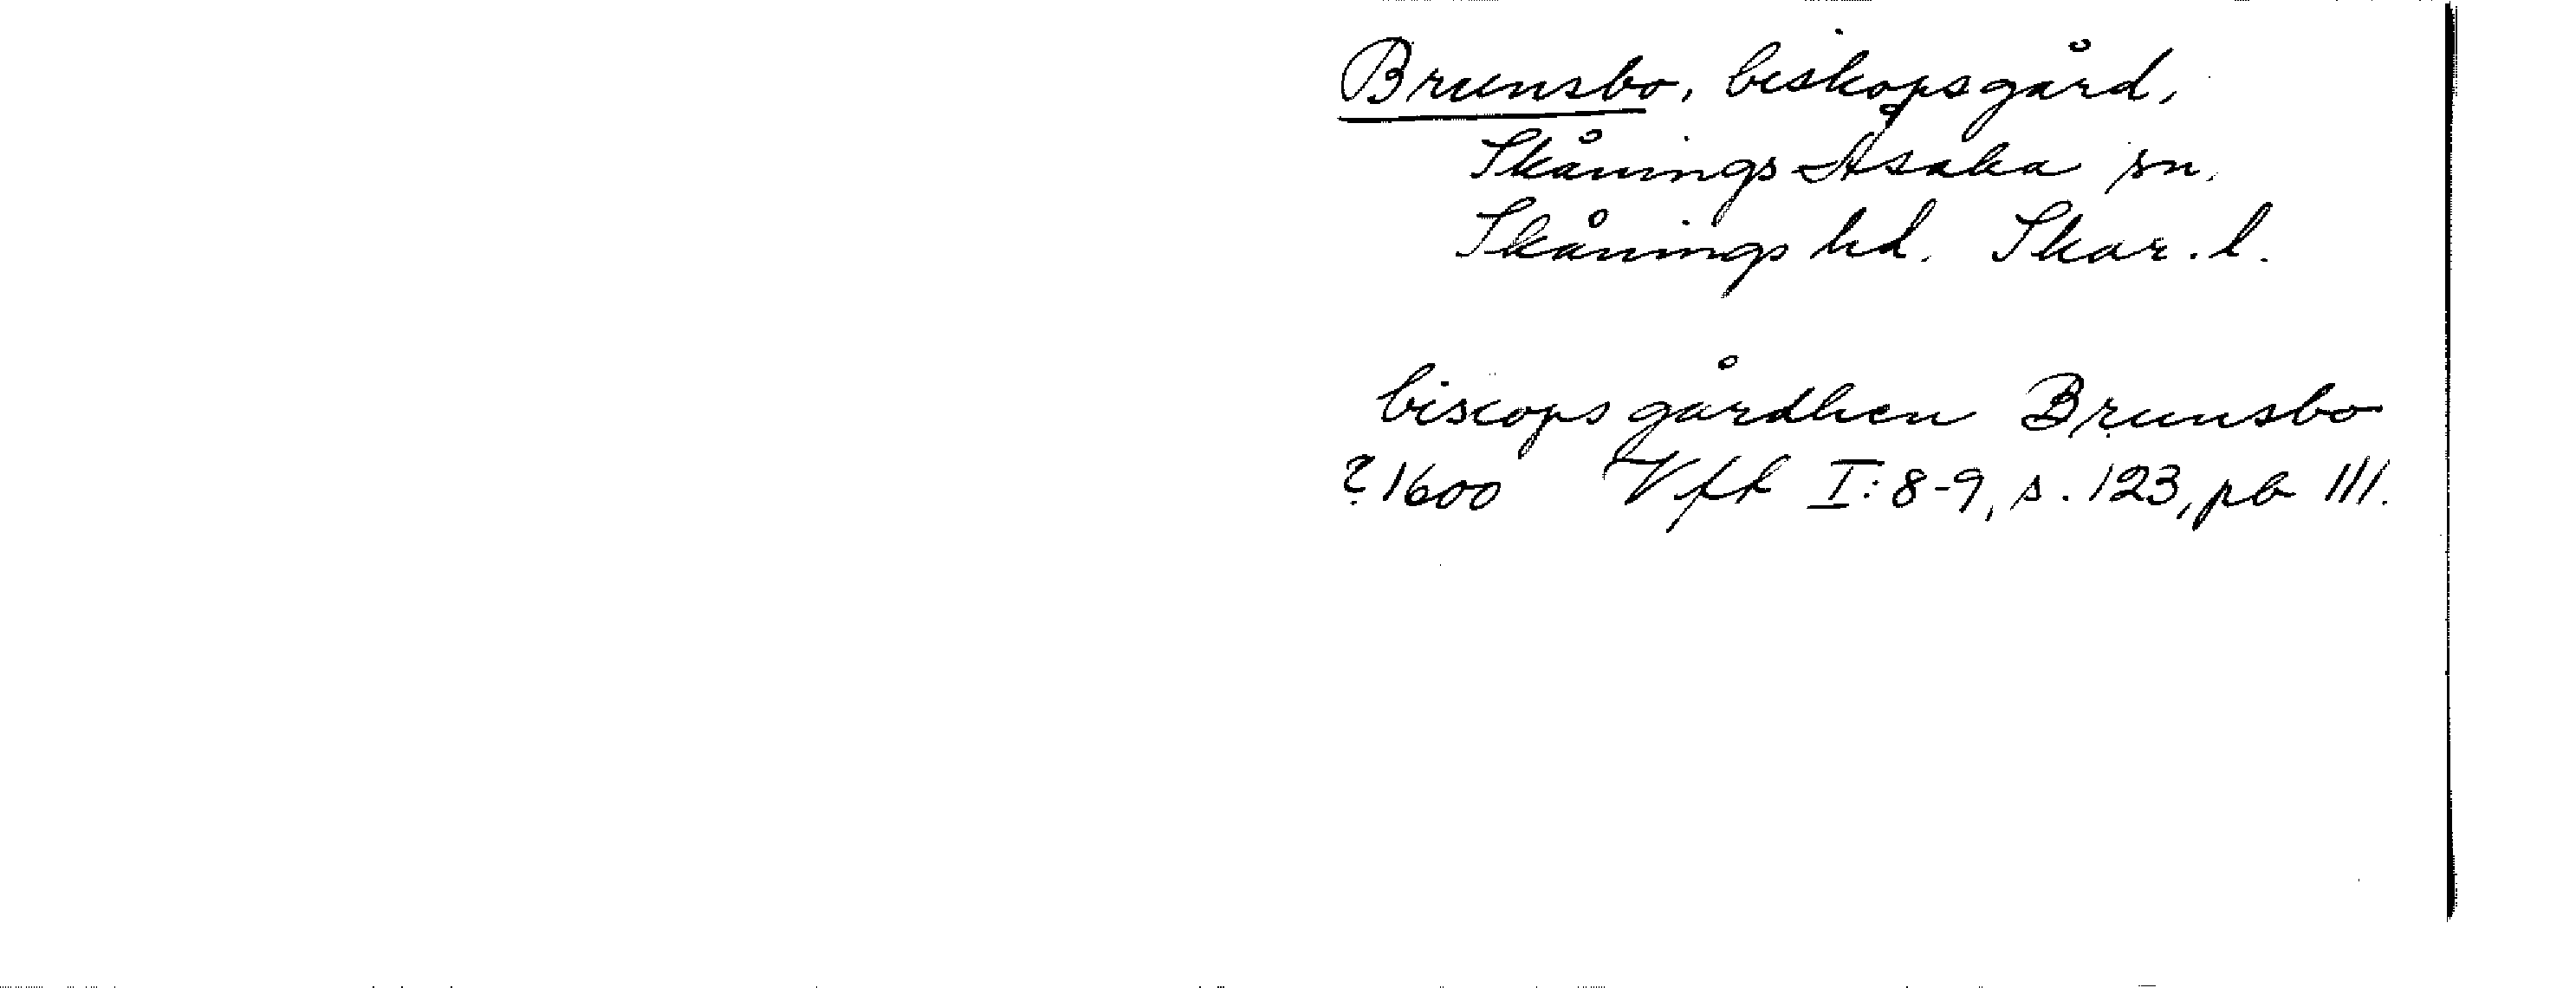 Brunsbo, biskopsgård,
Skånings Åsaka sn.
Skånings hd. Skar. l.
biscops gårdhen Brunsbo
? 1600 Vfk I: 8-9, s. 123, pb 111.